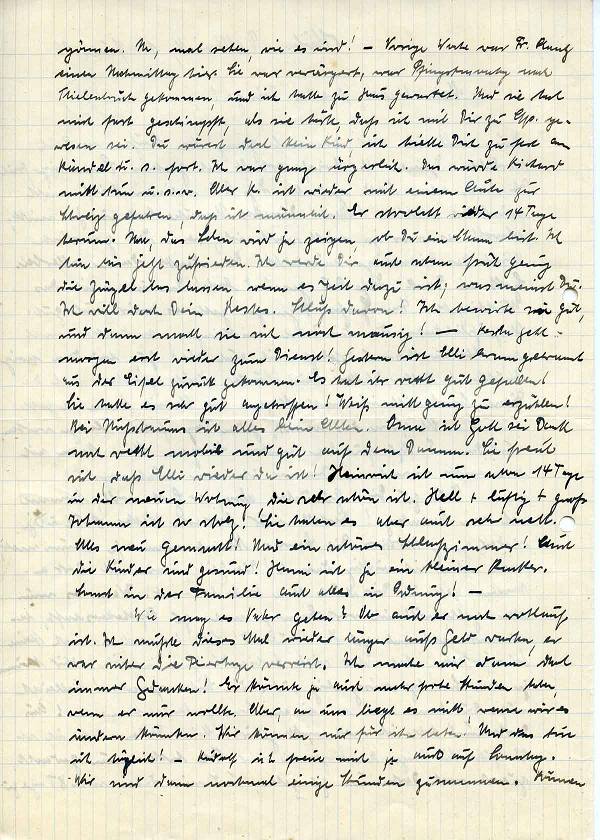 gönnen. Na, mal sehen, wie es wird! – Vorige Woche war Fr.
einen Nachmittag hier. Sie war verärgert, war Pfingstmontag nach
gekommen, und ich hatte zu Haus gewartet. Und sie hat
mich fast geschimpft, als sie hörte, daß ich mit Dir zu ge-
wesen sei. Du wärst doch kein Kind ich hielte Dich zu fest am
Bändel u. s. fort. Ich war ganz ärgerlich. Das würde Richard
nicht tun u.s.w. Aber R. ist wieder mit einem Leute zur
gefahren, daß ist männlich. Er wieder 14 Tage
herum. Nun, das Leben wird ja zeigen, ob Du ein Mann bist. Ich
bin bis jetzt zufrieden. Ich werde Dir auch schon früh genug
die Zügel los lassen wenn es Zeit dazu ist; was meinst Du.
Ich will doch Dein Bestes. Schluß davon! Ich bewirte sie gut,
und dann macht sie sich noch mausig! – Herta geht
morgen erst wieder zum Dienst! Gestern ist Elli braun gebrannt
aus der Eifel zurück gekommen. Es hat ihr recht gut gefallen!
Sie hatte es sehr gut angetroffen! Weiß nicht genug zu erzählen!
Bei ist alles beim Alten. Oma ist Gott sei Dank
noch recht mobil und gut auf dem Damm. Sie freut
sich daß Elli wieder da ist! Heinrich ist nun schon 14 Tage
in der neuen Wohnung, die sehr schön ist. Hell + luftig + groß
Johanna ist so stolz! Sie haben es aber auch sehr nett.
Alles neu gemacht! Und ein schönes Schlafzimmer! Auch
die Kinder sind gesund! Hanni ist ja ein kleiner
Sonst in der Familie auch alles in Ordnung! –
Wie mag es Vater gehen? Ob auch er noch wohlauf
ist. Ich mußte dieses Mal wieder länger aufs Geld warten, er
war sicher die Feiertage verreist. Ich mache mir dann doch
immer Gedanken! Er könnte ja auch mehr frohe Stunden haben,
wenn er nur wollte. Aber, an uns liegt es nicht, wenn wir es
ändern könnten. Wir können nur für ihn beten! Und das tue
ich täglich! – Rudolf ich freue mich ja auch auf Sonntag.
Wir sind dann nochmal einige Stunden zusammen. Können